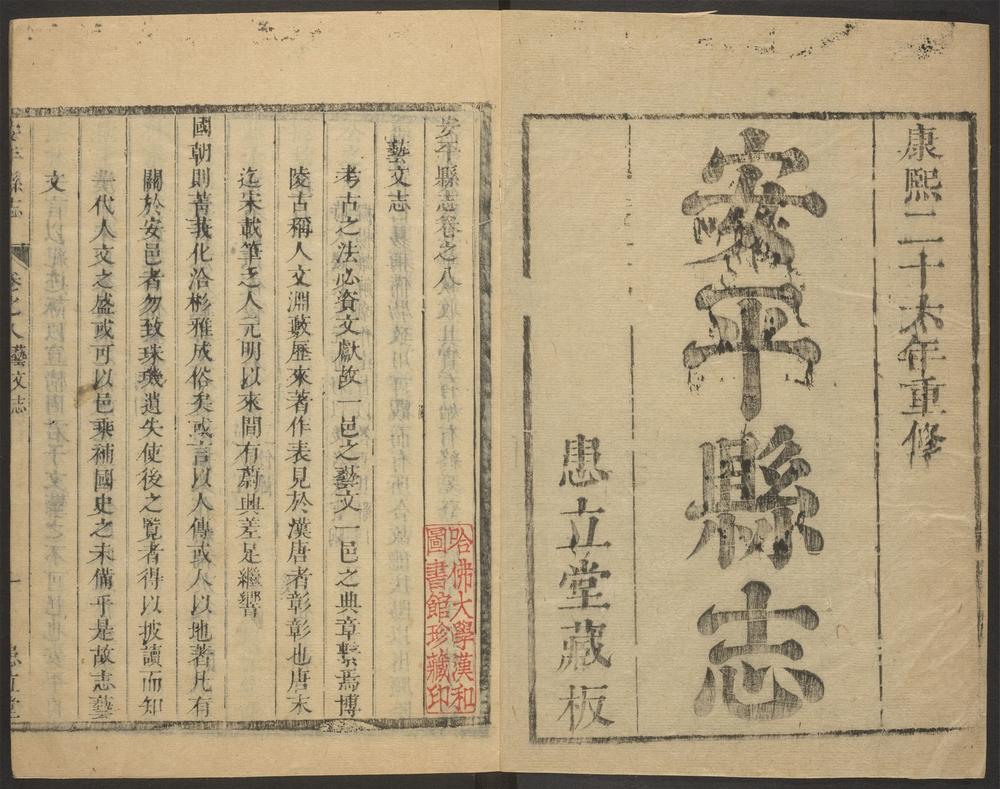 康熙二十六年重修
安平縣志
患立堂藏板
安平縣志卷之八
藝文志
考古之法必資文獻故一邑之藝文一邑之典章繫焉博
陵古稱人文淵藪歷來著作表見於漢唐者彰彰也唐末
迄宋載筆乏人元明以來間有蔚興差足繼響
國朝則菁莪化洽彬雅成俗矣或言以人傳或人以地著凡有
關於安邑者勿致珠璣遺失使後之覽者得以披讀而知
代人文之盛或可以邑乘補國史之未備乎是故志藝
文
安平縣志
卷之八藝文志
一
患立堂
哈佛大學漢和
圖書館珍藏印